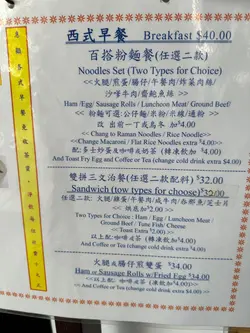 西式早餐 Breakfast $40.00
百搭粉麵餐(任選二款)
Noodles Set (Two Types for Choice)
火腿/煎蛋/腸仔/午餐肉/炸菜肉絲/
沙嗲牛肉/齋鮑魚絲 >>
Ham /Egg/ Sausage Rolls / Luncheon Meat/ Ground Beef/
<< 粉麵可選:公仔麵/米粉/米線/通粉 >>
改 出前一丁或烏冬 加$4.00
<< Chang to Raman Noodles / Rice Noodle>>
<<Change Macaroni / Flat Rice Noodles extra $4.00>>
配:多士炒蛋及咖啡或奶茶 (轉凍飲加$4.00)
And Toast Fry Egg and Coffee or Tea (change cold drink extra $4.00)
雙拼三文治餐(任選二款配料) $32.00
Sandwich (tow types for choose)$32.00
Two Types for Choice : Ham / Egg / Luncheon Meat /
Ground Beef / Tune Fish/ Cheese
<<Toast Extra $2.00>>
以上配: 咖啡或茶 (轉凍飲加$4.00)
And Coffee or Tea (change cold drink extra $4.00)
火腿或腸仔煎雙蛋 $34.00
Ham or Sausage Rolls w/Fried Egg $34.00
<< 以上配: 咖啡或茶 (轉凍飲加$4.00)
And Coffee or Tea (change cold drink extra $4.00)